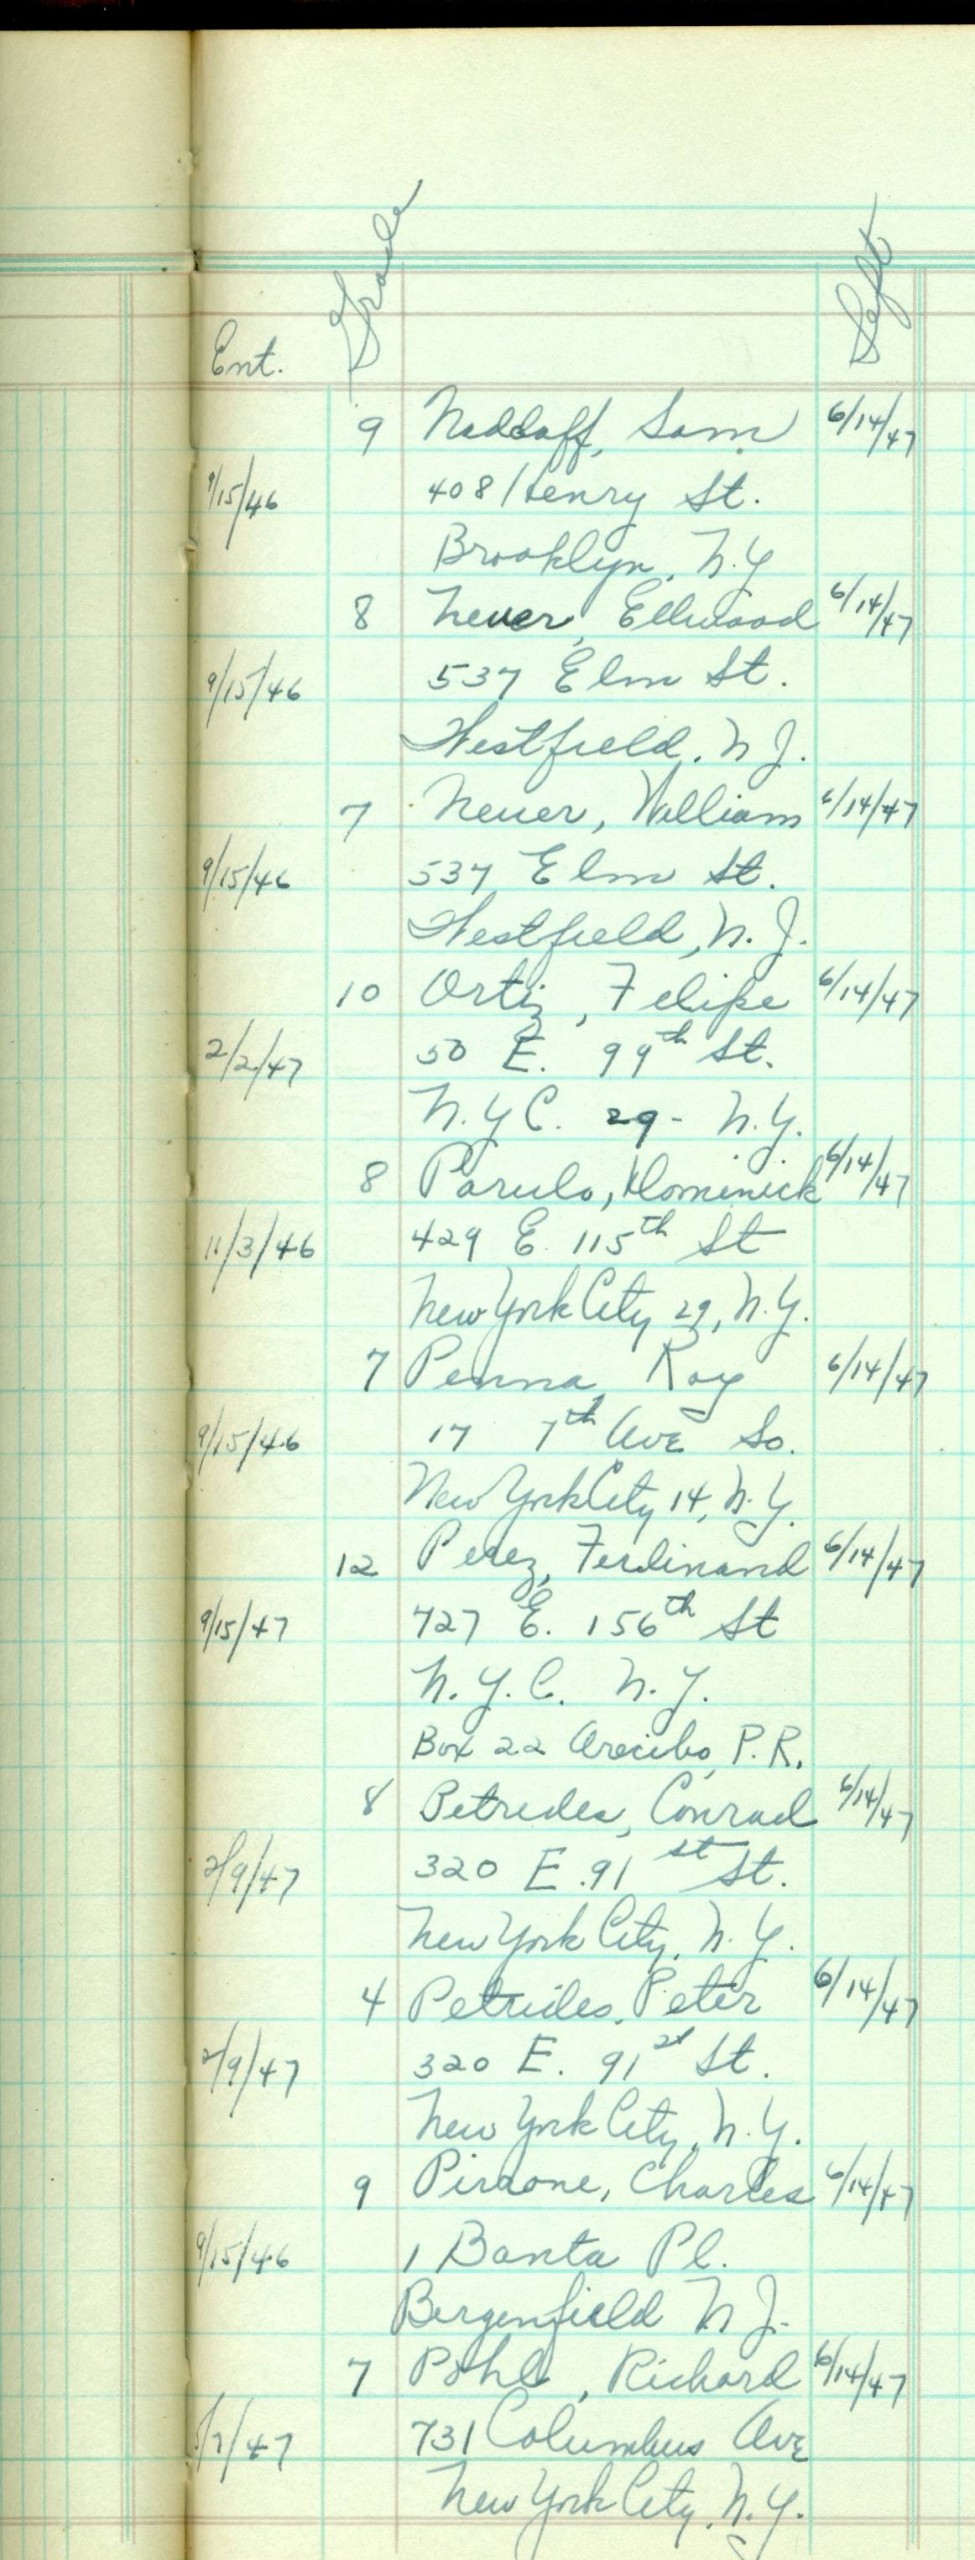 Ent. Grade Left
9 Naddaff, Sam 6/14/47
9/15/46 408 Henry St.
Brooklyn, N.Y
8 Neuer, Ellwood 6/14/47
9/15/46 537 Elm St.
Westfield, N J.
7 Neuer, William 6/14/47
9/15/46 537 Elm St.
Westfield, N. J.
10 Ortiz, Felipe 6/14/47
2/2/47 50 E. 99th St.
N.Y C. 29- N.Y.
8 Parulo, Dominick 6/14/47
11/3/46 429 E. 115th St
New York City 29, N.Y.
7 Penna, Roy 6/14/47
9/15/46 17 7th Ave So.
New York City 14, N.Y.
12 Perez, Ferdinand 6/14/47
9/15/47 727 E. 156th St
N.Y.C. N.Y.
Box 22 Arecibo, P.R.
8 Petrides, Conrad 6/14/47
2/9/47 320 E. 91st St.
New York City, N.Y.
4 Petrides, Peter 6/14/47
2/9/47 320 E. 91st St.
New York City, N.Y.
9 Pirrone, Charles 6/14/47
9/15/46 1 Banta Pl.
Bergenfield N J.
7 Pohl, Richard 6/14/47
/47 731 Columbus Ave
New York City, N.Y.